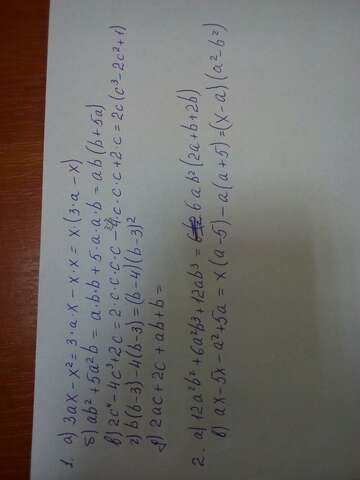 1. а) 3ax - x² = 3·a·x - x·x = x·(3·a - x)
б) ab² + 5a²b = a·b·b + 5·a·a·b = ab(b + 5a)
в) 2c⁴ - 4c³ + 2c = 2·c·c·c·c - 4·c·c·c + 2·c = 2c(c³ - 2c² + 1)
г) b(b-3) - 4(b-3) = (b-4)(b-3)²
д) 2ac + 2c + ab + b =
2. а) 12a²b² + 6a²b³ + 12ab³ = 6ab²(2a + b + 2b)
в) ax - 5x - a² + 5a = x(a-5) - a(a+5) = (x-a)(a²-b²)